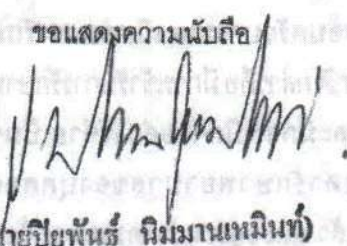 ขอแสดงความนับถือ
นายปิยพันธุ์ นิมมานเหมินท์)